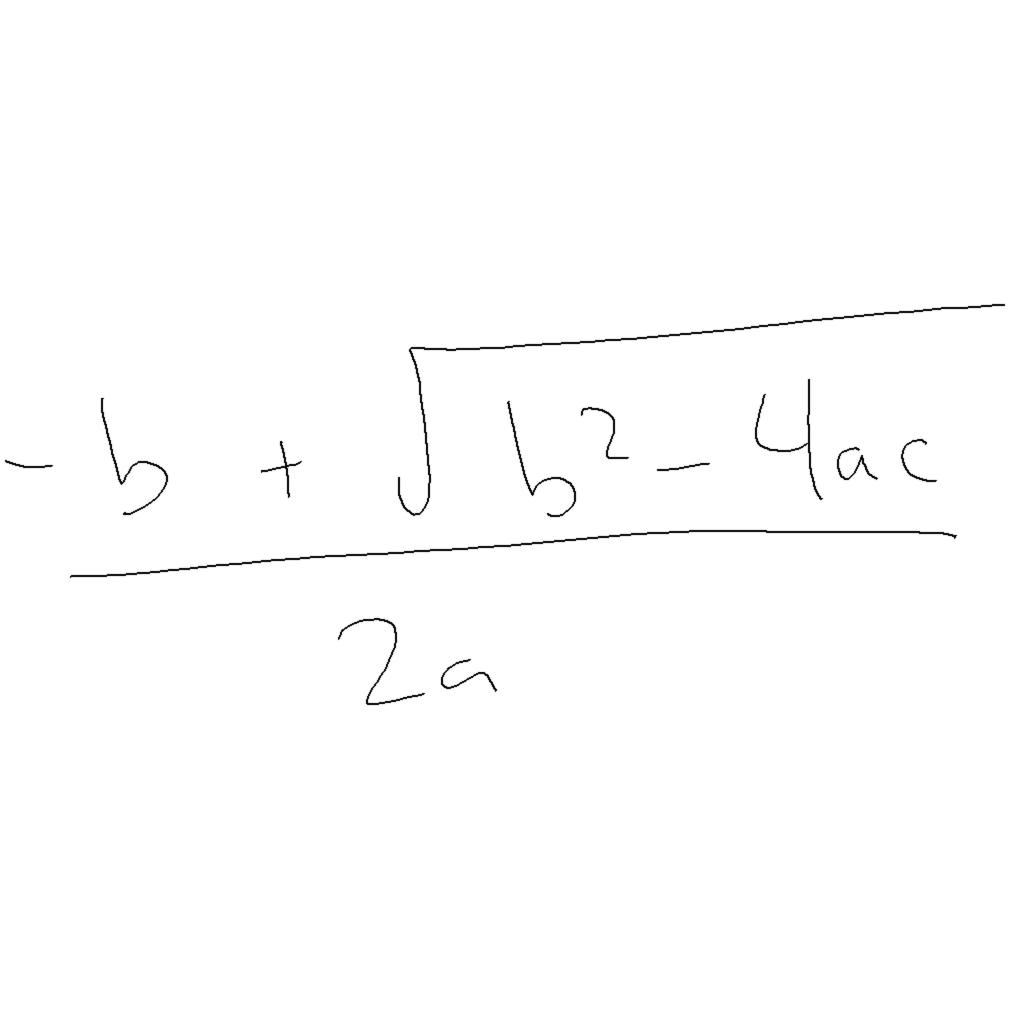 -b + √b²-4ac
2a